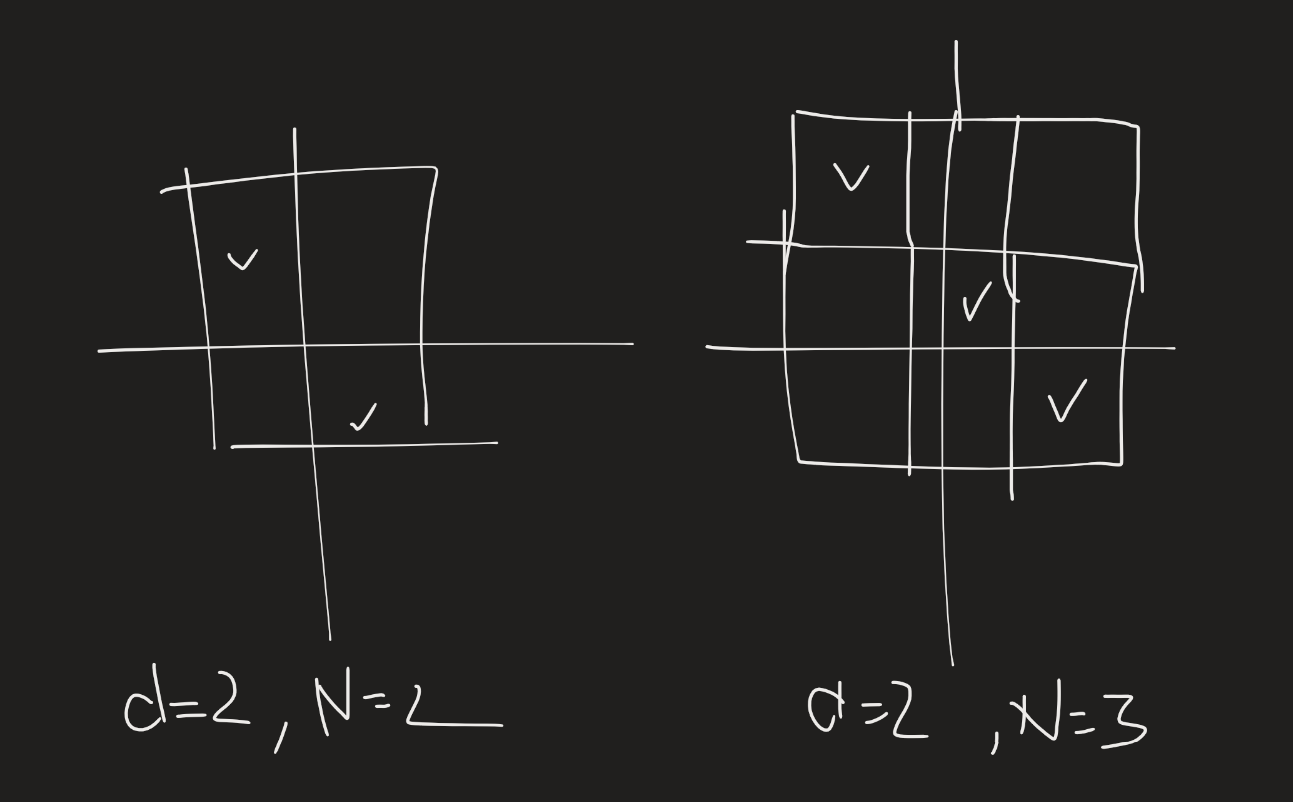 d=2, N=2
d=2, N=3